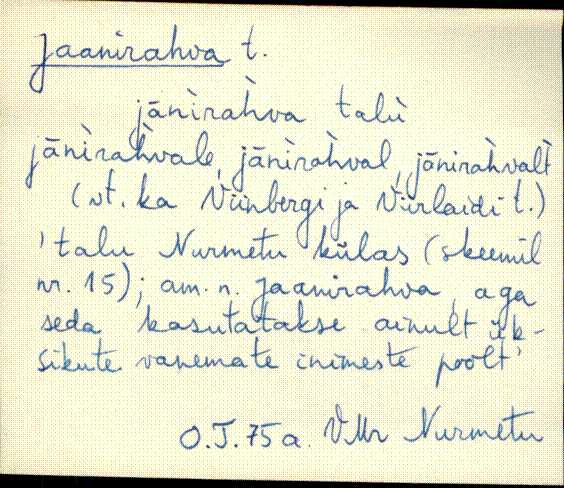 Jaanirahva t.
jānìràhva talù
jānìràhvale, jānìràhval, jānirahvalt
(vt. ka Viinbergi ja Viirlaidi t.)
'talu Nurmetu külas (skeemil
nr. 15); am. n. Jaanirahva, aga
seda kasutatakse ainult ük-
sikute vanemate inimeste poolt'
O.J. 75 a. VMr Nurmetu